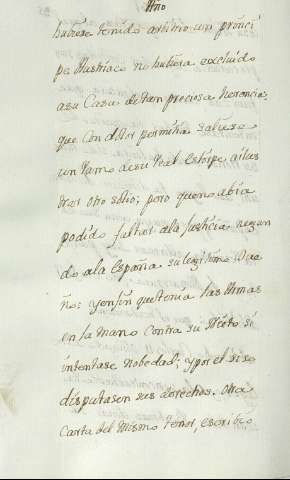 tño
hubiese tenido arbitrio un princi
pe Austriaco no hubiera excluido
a su Casa de tan preciosa herencia:
que con dolor permitia saliese
un ramo de su Real estirpe a ilus
trar otro solio; pero que no abia
podido faltar ala Justicia negan
do ala España su legitimo Due
ño: Y en fin que tenia las Armas
en la mano contra su Nieto si
intentase nobedad; y por el si se
disputasen sus derechos. Otra
Carta del mismo tenor, escribio